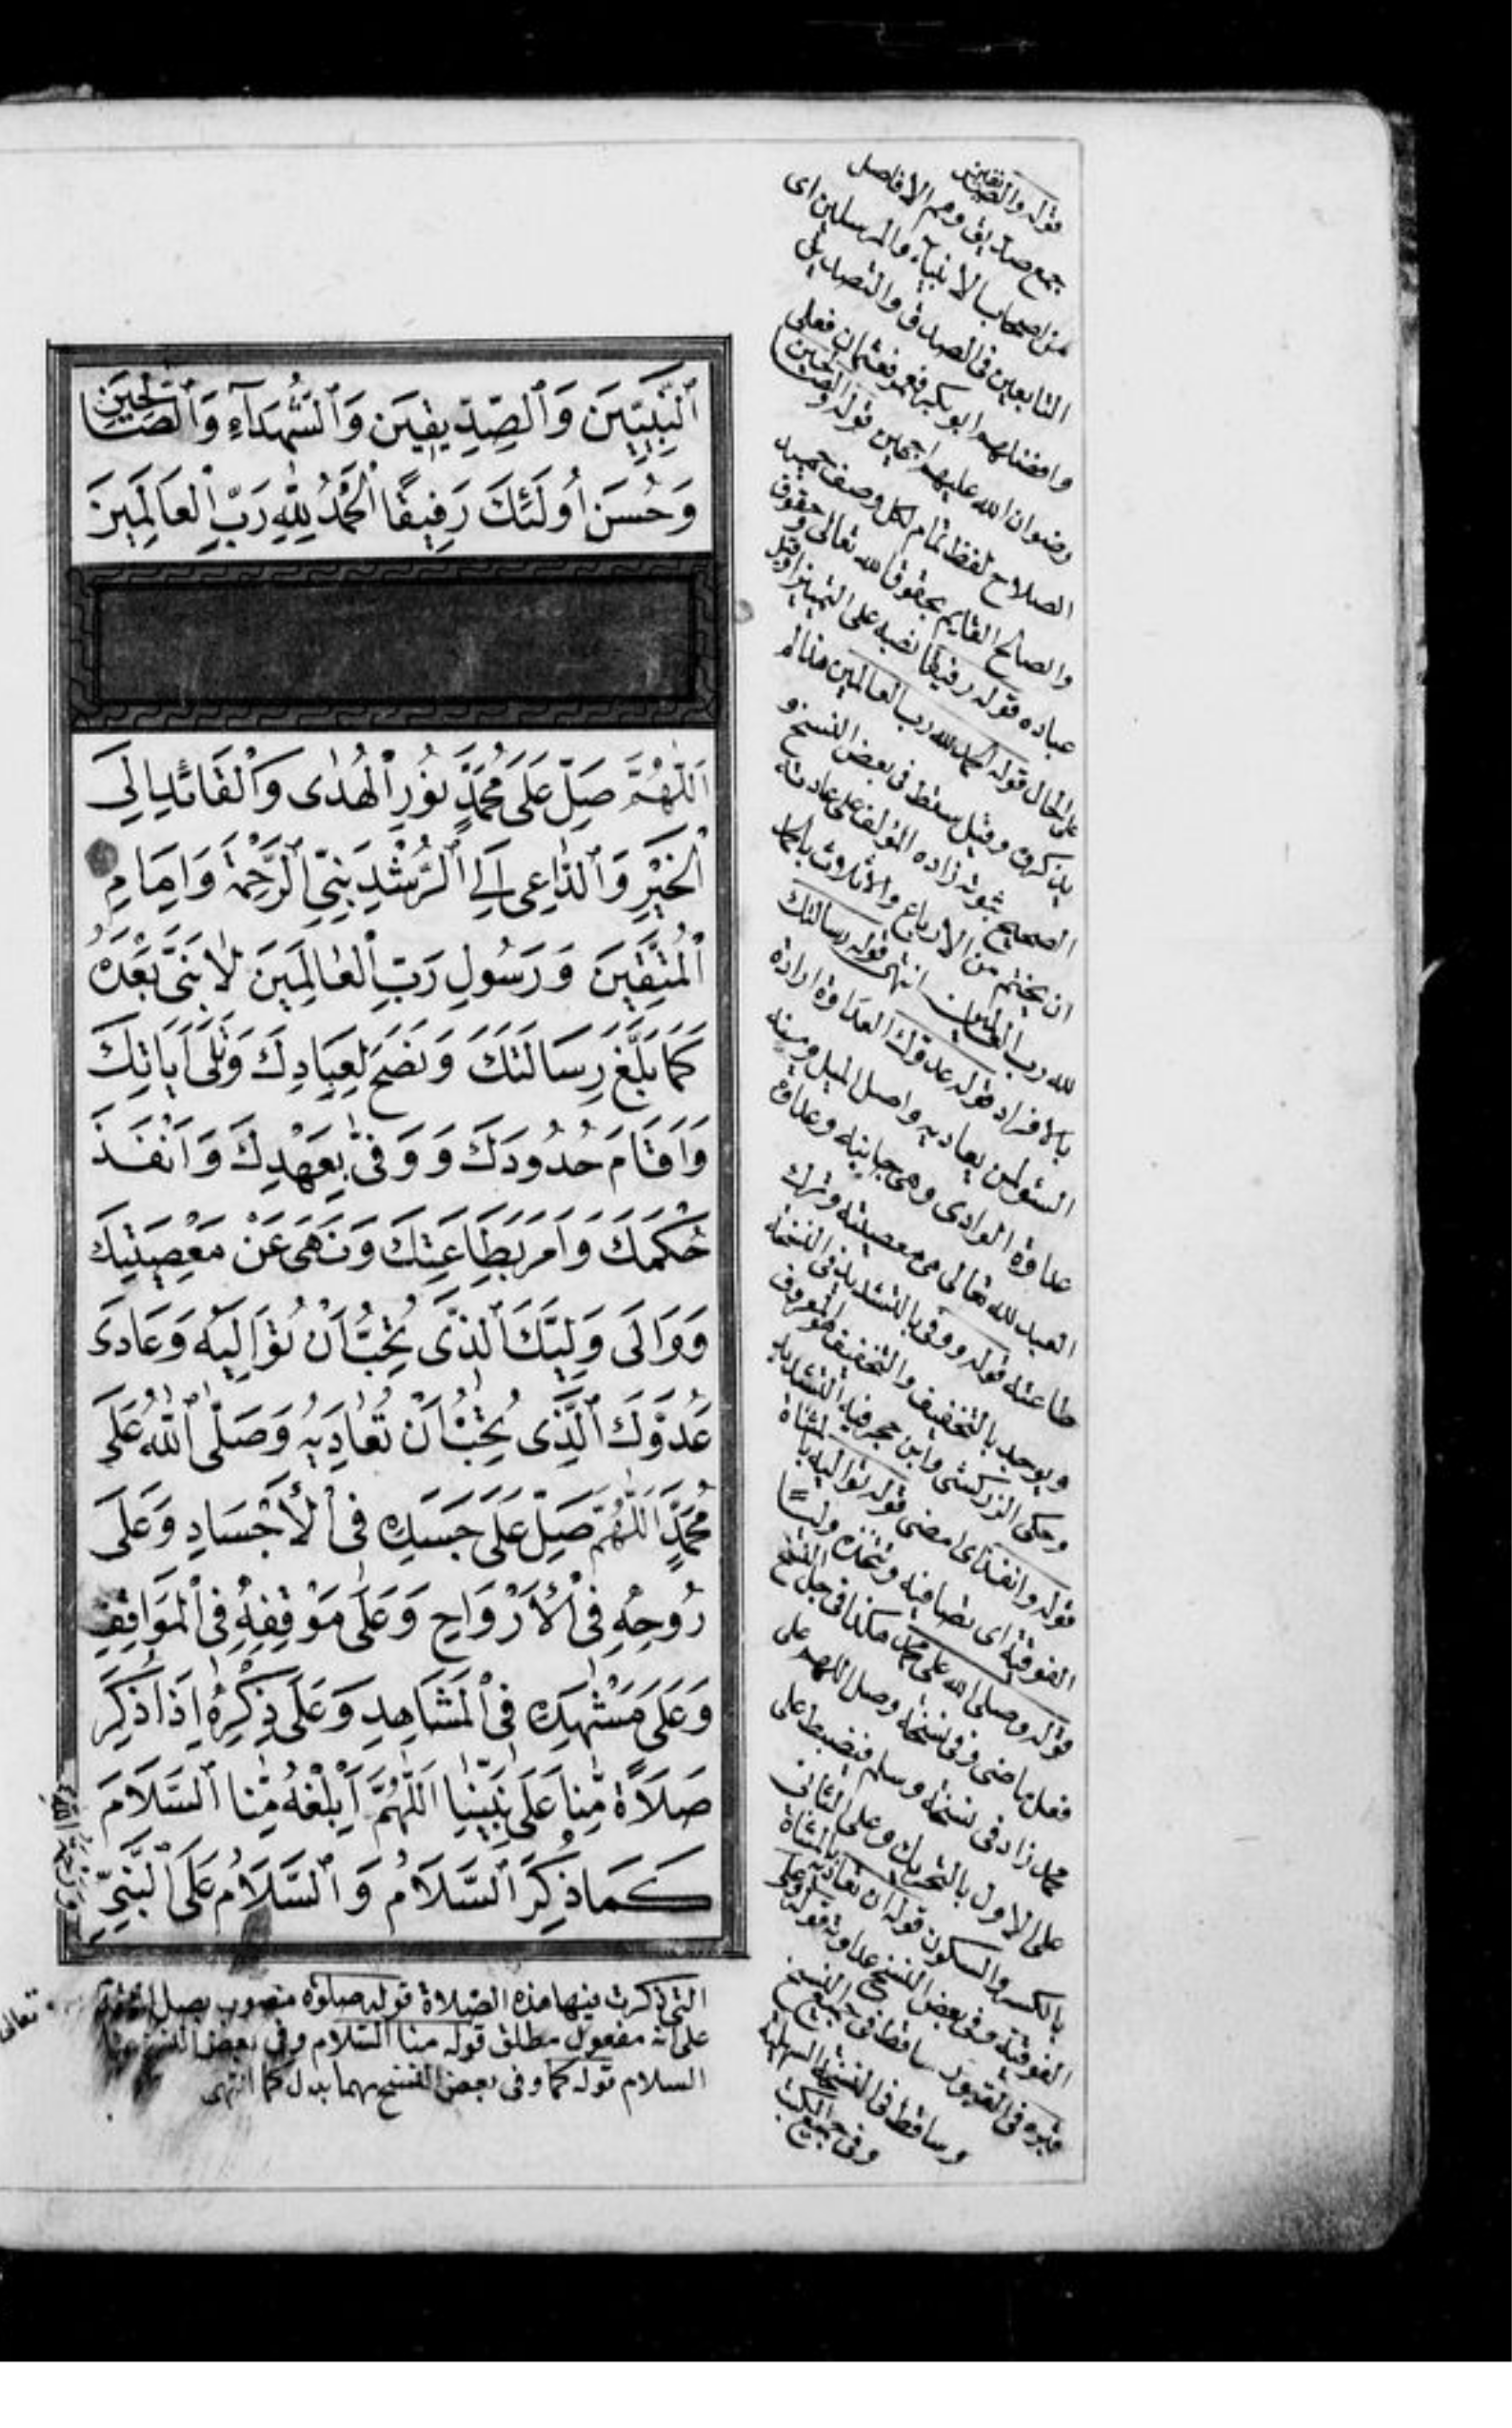 ٱلنَّبِيِّينَ وَٱلصِّدِّيقِينَ وَٱلشُّهَدَآءِ وَٱلصَّالِحِينَ
وَحَسُنَ أُولَئِكَ رَفِيقًا اَلْحَمْدُ لِلّٰهِ رَبِّ ٱلْعَالَمِينَ
اَللّٰهُمَّ صَلِّ عَلَى مُحَمَّدٍ نُورِ ٱلْهُدٰى وَٱلْقَائِدِ اِلَى
ٱلْخَيْرِ وَٱلدَّاعِى اِلَى ٱلرُّشْدِ نَبِيِّ ٱلرَّحْمَةِ وَاِمَامِ
ٱلْمُتَّقِينَ وَرَسُولِ رَبِّ ٱلْعَالَمِينَ لَا نَبِىَّ بَعْدَهُ
كَمَا بَلَّغَ رِسَالَتَكَ وَنَصَحَ لِعِبَادِكَ وَتَلَى آيَاتِكَ
وَاَقَامَ حُدُودَكَ وَوَفَّى بِعَهْدِكَ وَاَنْفَذَ
حُكْمَكَ وَاَمَرَ بِطَاعَتِكَ وَنَهَى عَنْ مَعْصِيَتِكَ
وَوَالَى وَلِيَّكَ ٱلَّذِى تُحِبُّ اَنْ تُوَالِيَهُ وَعَادَى
عَدُوَّكَ ٱلَّذِى تُحِبُّ اَنْ تُعَادِيَهُ وَصَلَّى ٱللّٰهُ عَلَى
مُحَمَّدٍ اَللّٰهُمَّ صَلِّ عَلَى جَسَدِهِ فِى ٱلْأَجْسَادِ وَعَلَى
رُوحِهِ فِى ٱلْأَرْوَاحِ وَعَلَى مَوْقِفِهِ فِى ٱلْمَوَاقِفِ
وَعَلَى مَشْهَدِهِ فِى ٱلْمَشَاهِدِ وَعَلَى ذِكْرِهِ اِذَا ذُكِرَ
صَلَاةً مِنَّا عَلَى نَبِيِّنَا اَللّٰهُمَّ اَبْلِغْهُ مِنَّا ٱلسَّلَامَ
كَمَا ذُكِرَ ٱلسَّلَامُ وَٱلسَّلَامُ عَلَى ٱلنَّبِيِّ
وَرَحْمَةُ اللّٰهِ
تعالى
قوله والصديقين
جمع صديق وهم الافاضل
من اصحاب الانبياء والمرسلين اى
التابعين فى الصدق والتصديق
وافضلهم ابو بكر فعمر فعثمان فعلى
رضوان الله عليهم اجمعين قوله والصالحين
الصلاح لفظ تمام لكل وصف حميد
والصالح القايم بحقوق الله تعالى وحقوق
عباده قوله رفيقا نصبه على التمييز وقيل
على الحال قوله الحمد لله رب العالمين هذا لم
يذكره وقيل سقط فى بعض النسخ و
الصحيح ثبوته زاده المؤلف على عادته
ان يختم من الارباع والاثلاث بالحمد
لله رب العالمين انتهى قوله رسالتك
بالافراد قوله عدوك العداوة ارادة
السوء لمن يعاديه واصل الميل ومنه
عداوة الوادى وهى جانبه وعداوة
العبد لله تعالى هى معصيته وترك
طاعته قوله ووفى بالتشديد فى النسخة
ويوجد بالتخفيف والتخفيف هو المعروف
وحكى الزركشى وابن حجر فيه التشديد
قوله وانفذ اى امضى قوله تواليه بالمثناة
الفوقية اى تصافيه وتتخذه وليًّا
قوله وصلى الله على محمد هكذا فى جل النسخ
فعل ماضى وفى نسخة وصل اللهم على
محمد زاد فى نسخة وسلم فيضبط على
على الاول بالتحريك وعلى الثانى
بالكسر والسكون قوله ان تعاديه بالمثناة
الفوقية وفى بعض النسخ عداوته قوله وعلى
قبره فى القبور ساقط فى جميع النسخ
وساقط فى النسخة السهلية
وفى جميع الكتب
التى ذكرت فيها هذه الصلاة قوله صلوة منصوب بصل اللهم
على انه مفعول مطلق قوله منا السلام وفى بعض النسخ عنا
السلام قوله كما وفى بعض النسخ مهما بدل كما انتهى